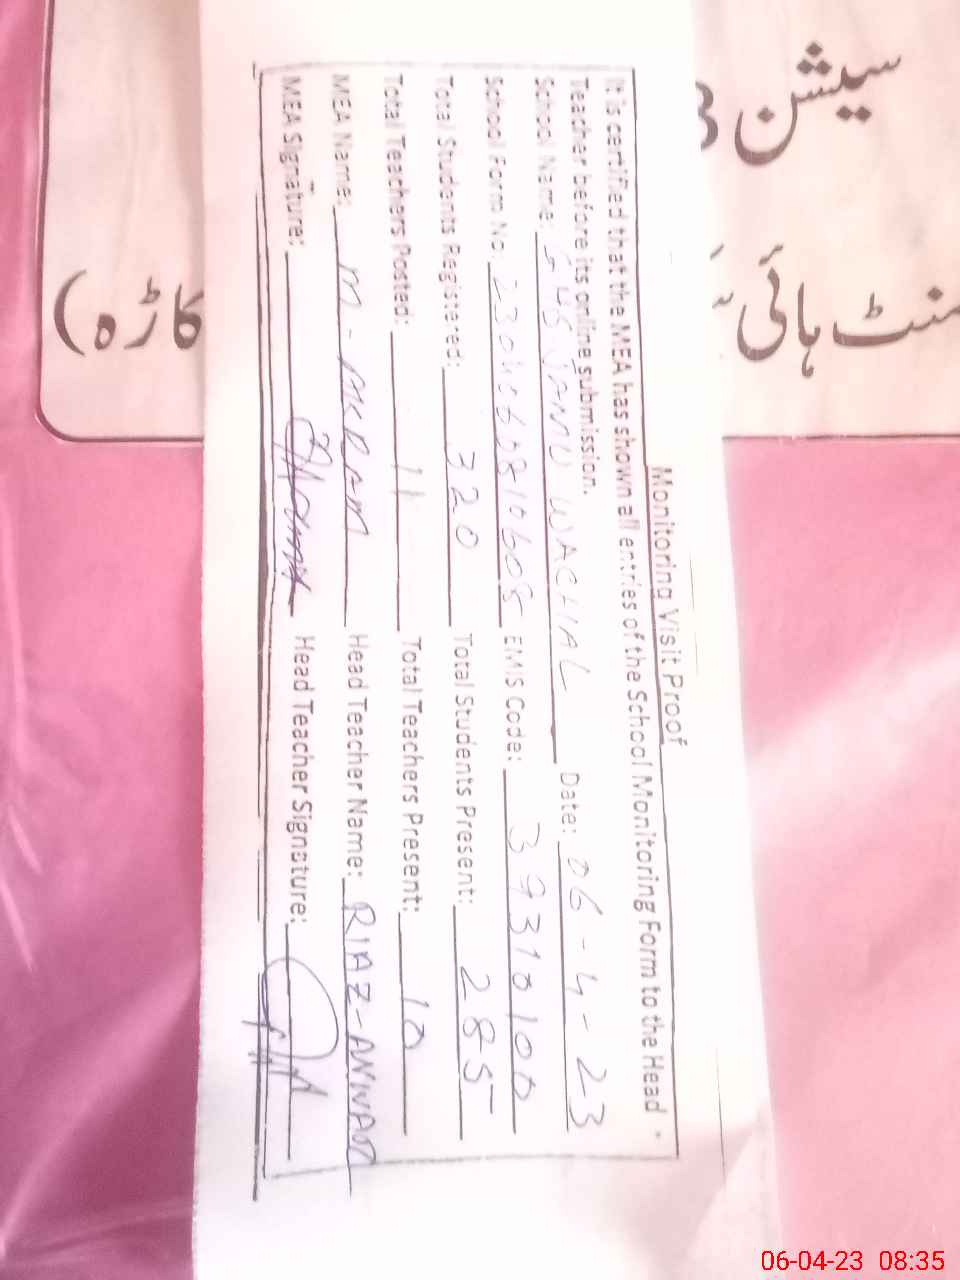 Monitoring Visit Proof
It is certified that the MEA has shown all entries of the School Monitoring Form to the Head
Teacher before its online submission.
School Name: GHS JAMU WACHAL Date: 06-4-23
School Form No: EMIS Code: 39310100
Total Students Registered: 320 Total Students Present: 285
Total Teachers Posted: 11 Total Teachers Present: 10
MEA Name: M-AKRAM Head Teacher Name: RIAZ-ANWAR
MEA Signature: Head Teacher Signature:
سیشن
منٹ ہائی
کاڑہ)
06-04-23 08:35